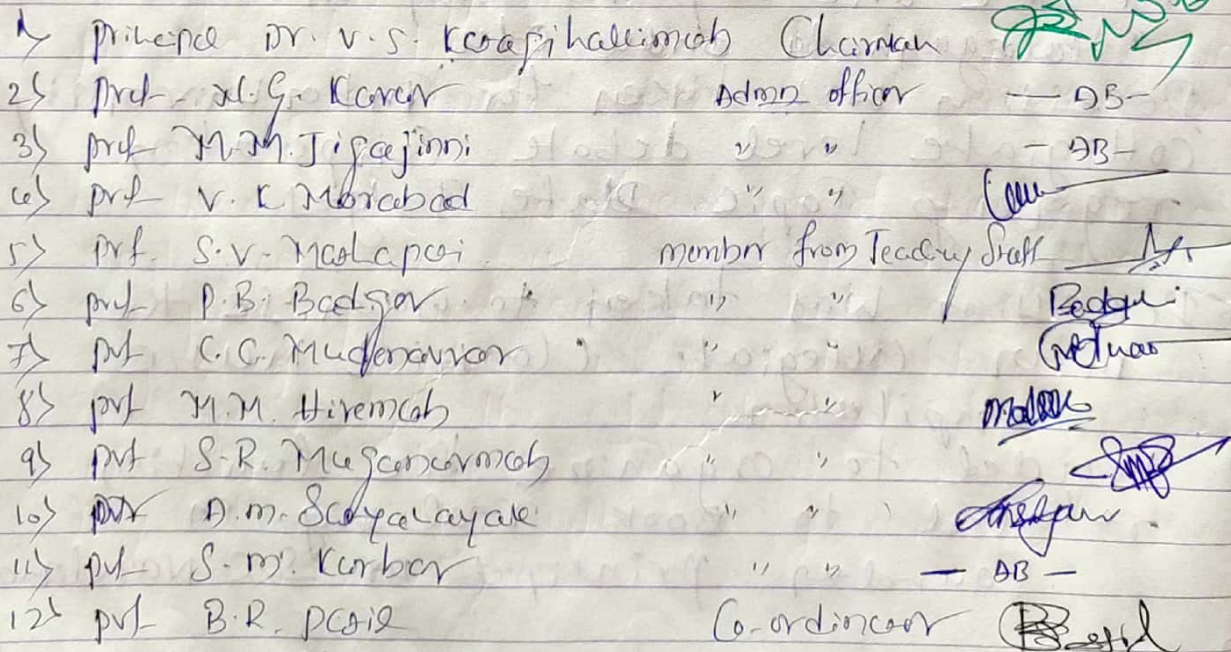 1) principal Dr. V. S. Karagihallimath Chairman
2) Prof. M. G. Karer Admn officer — AB —
3) prof M. M. Jigajinni " " — AB —
4) prf V. K. Morabad " "
5) prf. S. V. Madlapai member from Teaching Staff
6) prof P. B. Badiger " "
7) prf C. C. Mudenavar " "
8) prf M. M. Hiremath " "
9) prf S. R. Mugancormath " "
10) prf D. M. " "
11) prf S. M. Kurbar " " — AB —
12) prf B. R. Patil Co-ordinator